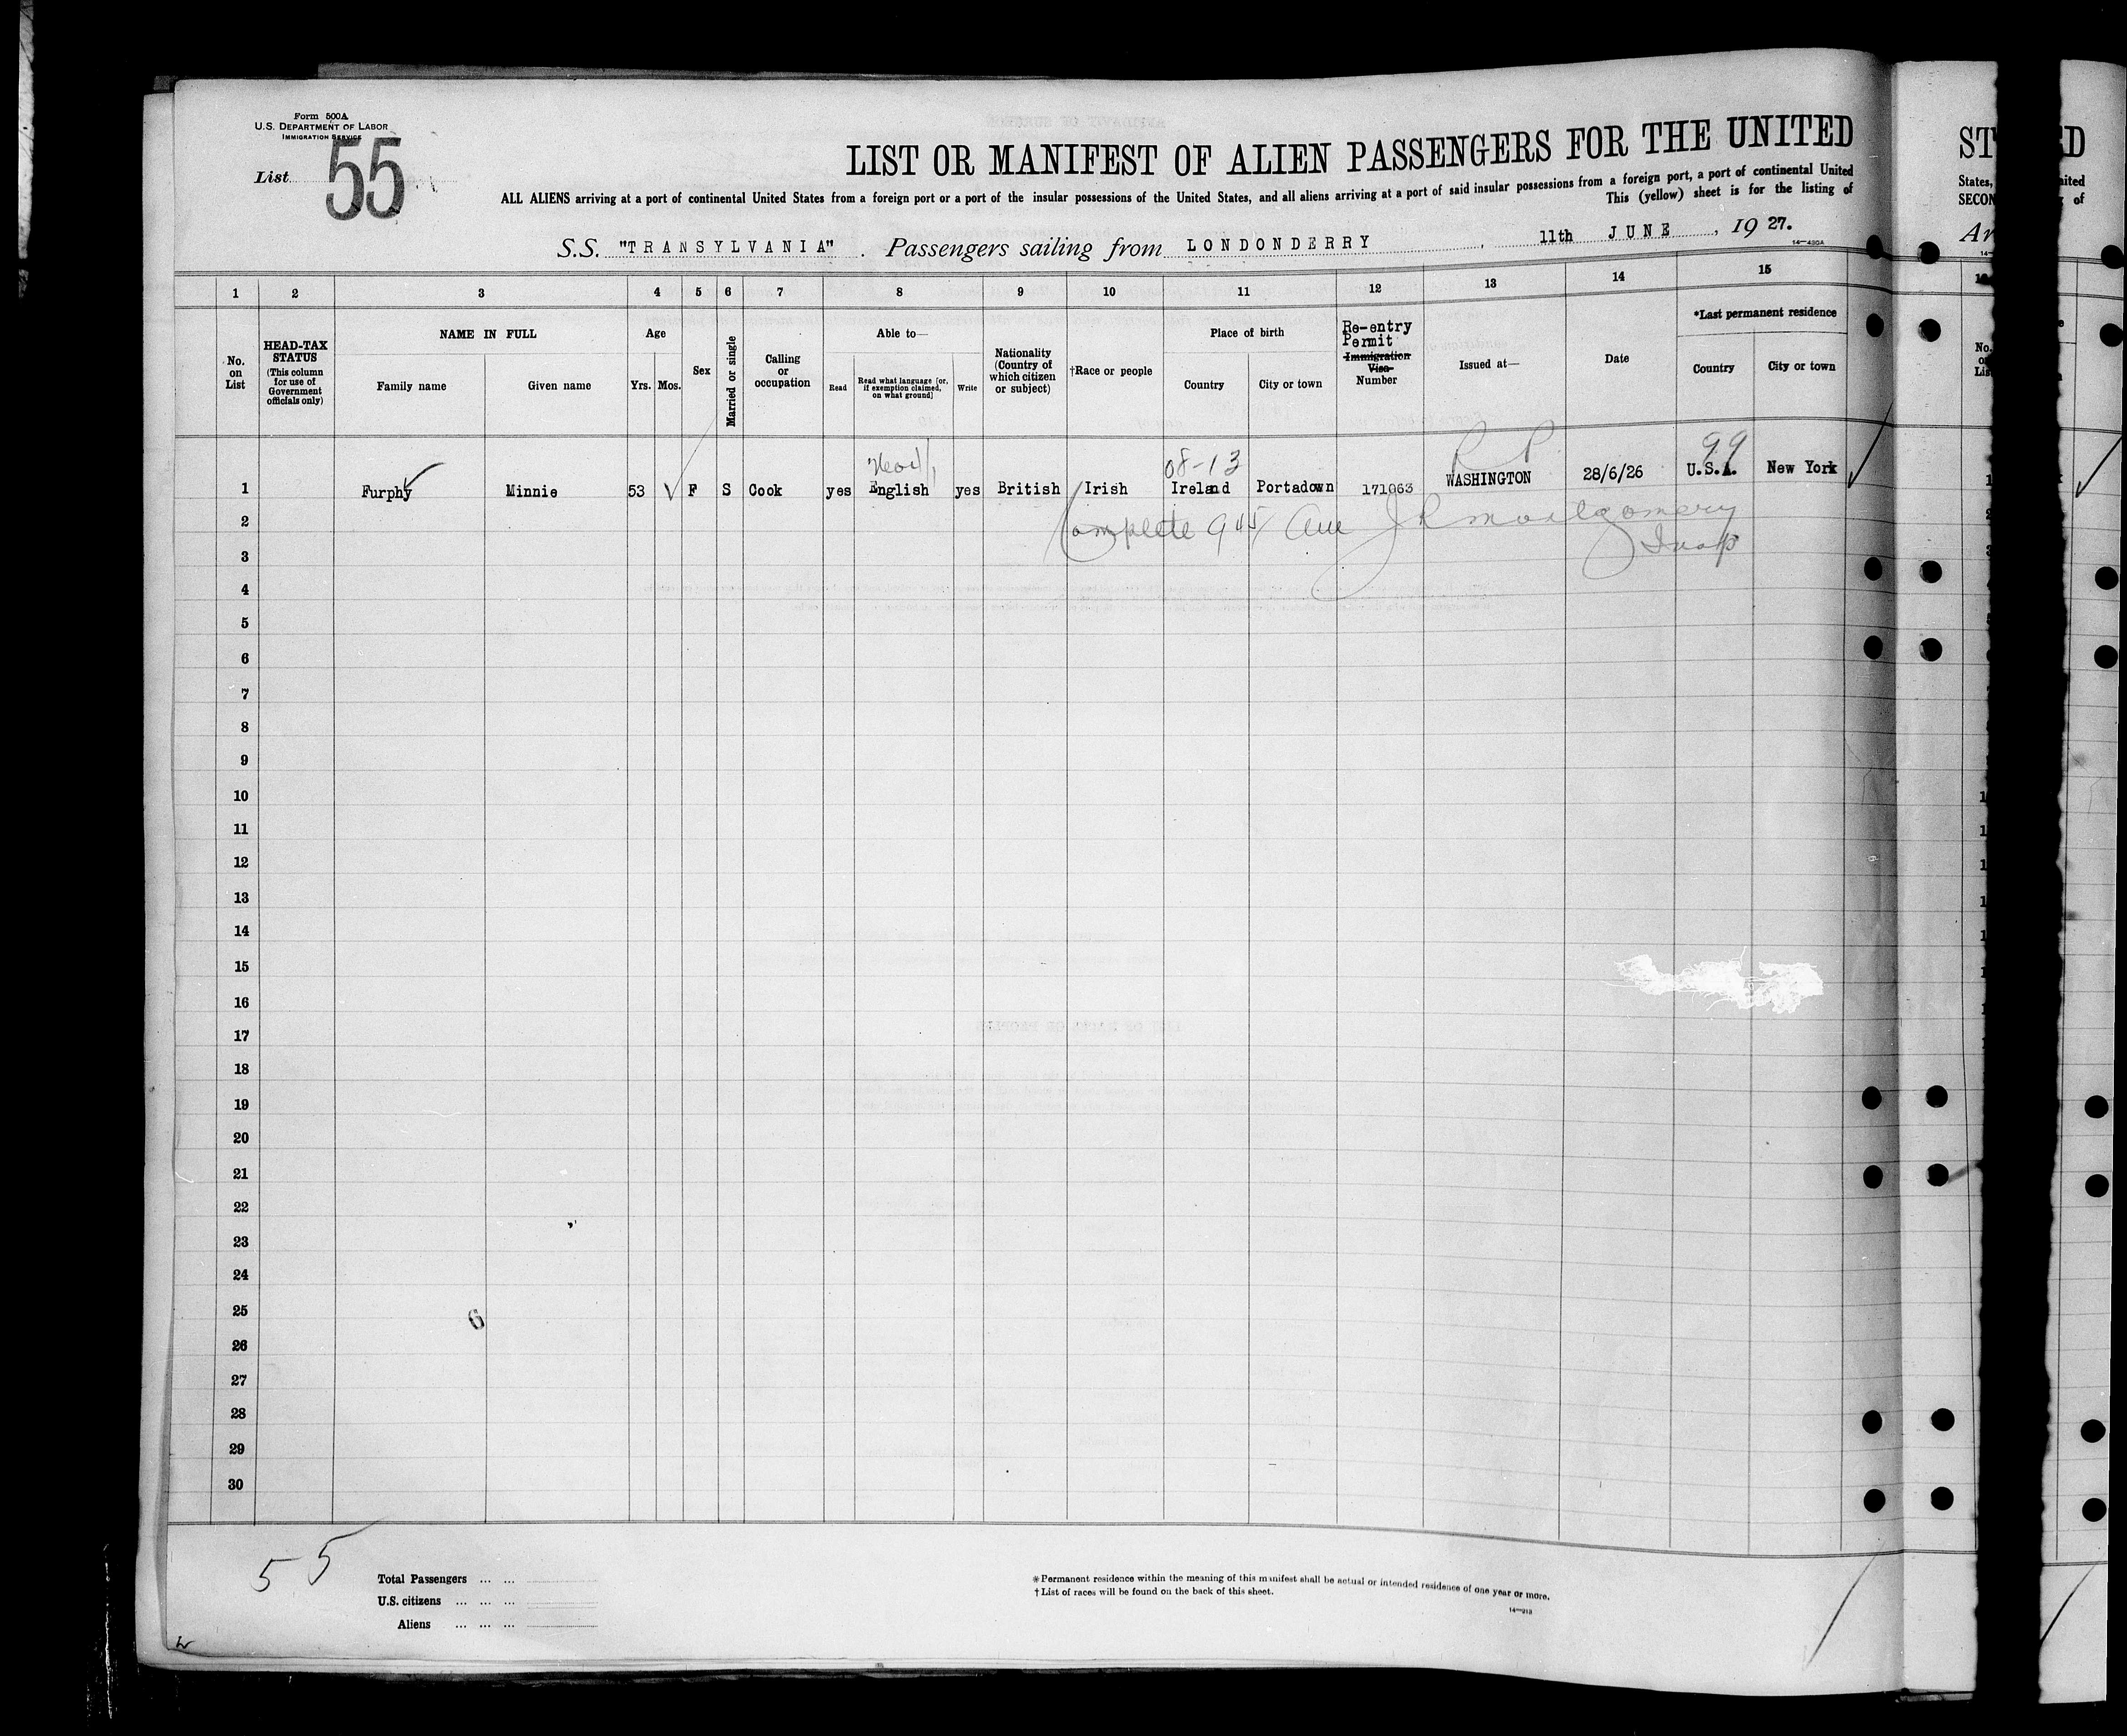 Form 500A
U.S. DEPARTMENT OF LABOR
IMMIGRATION SERVICE
List 55
LIST OR MANIFEST OF ALIEN PASSENGERS FOR THE UNITED
ALL ALIENS arriving at a port of continental United States from a foreign port or a port of the insular possessions of the United States, and all aliens arriving at a port of said insular possessions from a foreign port, a port of continental United
This (yellow) sheet is for the listing of
S.S. "TRANSYLVANIA" . Passengers sailing from LONDONDERRY , 11th JUNE , 19 27.
14—430A
1 2 3 4 5 6 7 8 9 10 11 12 13 14 15
No. on List
HEAD-TAX STATUS
(This column for use of Government officials only)
NAME IN FULL
Family name Given name
Age
Yrs. Mos.
Sex
Married or single
Calling or occupation
Able to—
Read Read what language [or, if exemption claimed, on what ground] Write
Nationality (Country of which citizen or subject)
†Race or people
Place of birth
Country City or town
Re-entry Permit
Immigration Visa
Number
Issued at—
Date
*Last permanent residence
Country City or town
08-13 R P 99
1 Furphy Minnie 53 F S Cook yes English yes British Irish Ireland Portadown 171063 WASHINGTON 28/6/26 U.S.A. New York
2 Complete 945 J R Montgomery
3 Insp
4
5
6
7
8
9
10
11
12
13
14
15
16
17
18
19
20
21
22
23
24
25
6
26
27
28
29
30
55
Total Passengers ... ...
U.S. citizens ... ... ...
Aliens ... ... ...
*Permanent residence within the meaning of this manifest shall be actual or intended residence of one year or more.
†List of races will be found on the back of this sheet.
14—213
States,
SECON
No.